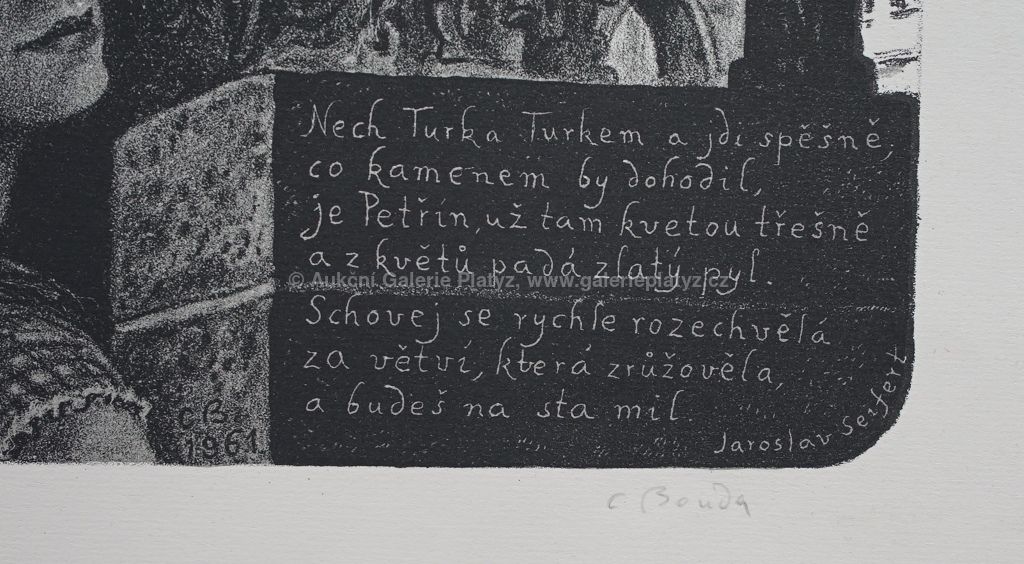 Nech Turka Turkem a jdi spěšně,
co kamenem by dohodil,
je Petřín, už tam kvetou třešně
a z květů padá zlatý pyl.
© Aukční Galerie Platyz, www.galerieplatyz.cz
Schovej se rychle rozechvělá
za větví, která zrůžověla,
a budeš na sta mil
Jaroslav Seifert
CB
1961
C Bouda